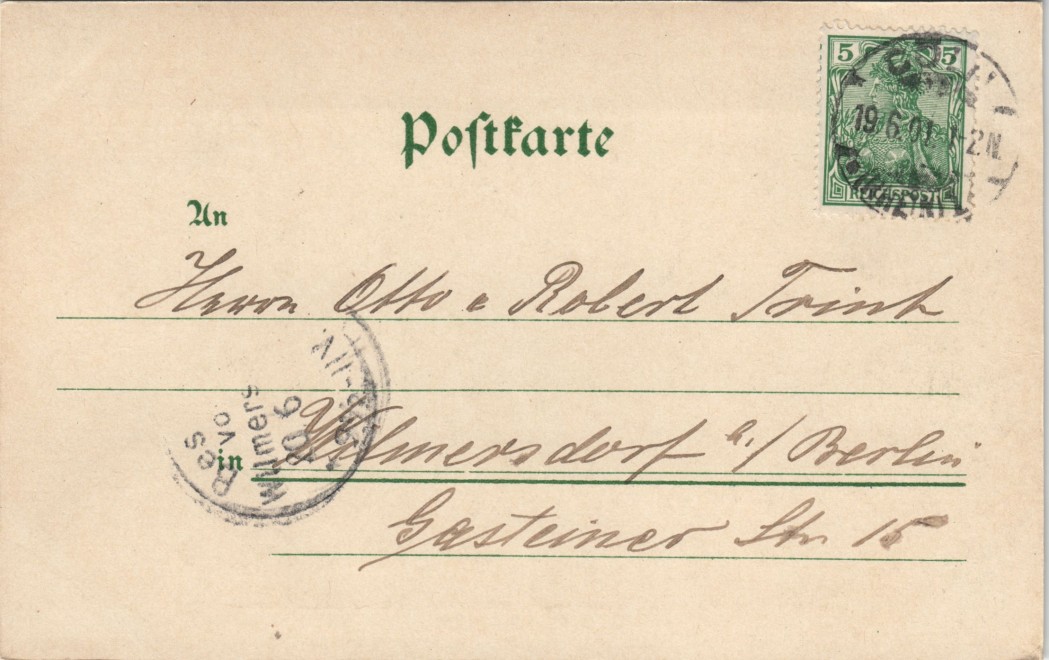 5 5
REICHSPOST
CÖLN
19.6.01. 1-2N.
Postkarte
An
Herrn Otto & Robert Trink
Wilmersdorf b./Berlin
in
Gasteiner Str. 15
Bes
Wilmers
20 6